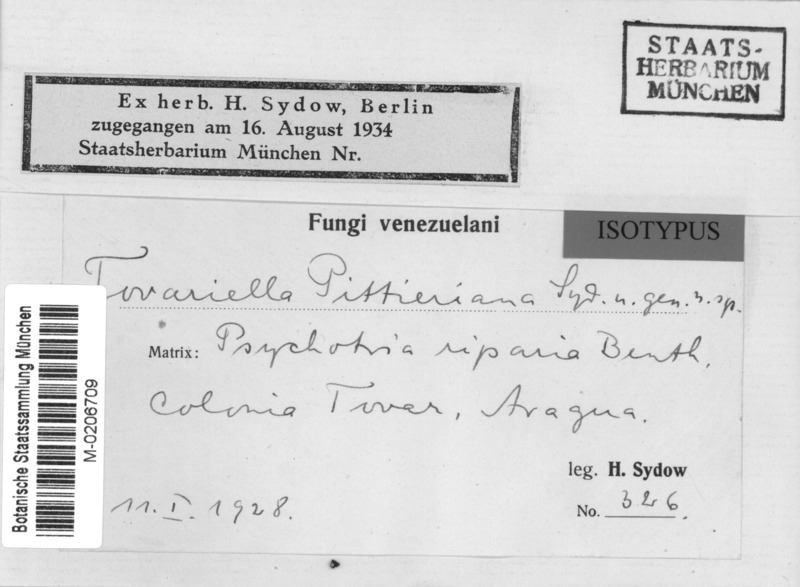 STAATS-
HERBARIUM
MÜNCHEN
Ex herb. H. Sydow, Berlin
zugegangen am 16. August 1934
Staatsherbarium München Nr.
Fungi venezuelani
ISOTYPUS
Tovariella Pittieriana Syd. n. gen. n. sp.
Matrix: Psychotria riparia Benth.
Colonia Tovar, Aragua.
leg. H. Sydow
11. I. 1928.
No. 326.
Botanische Staatssammlung München
M-0206709